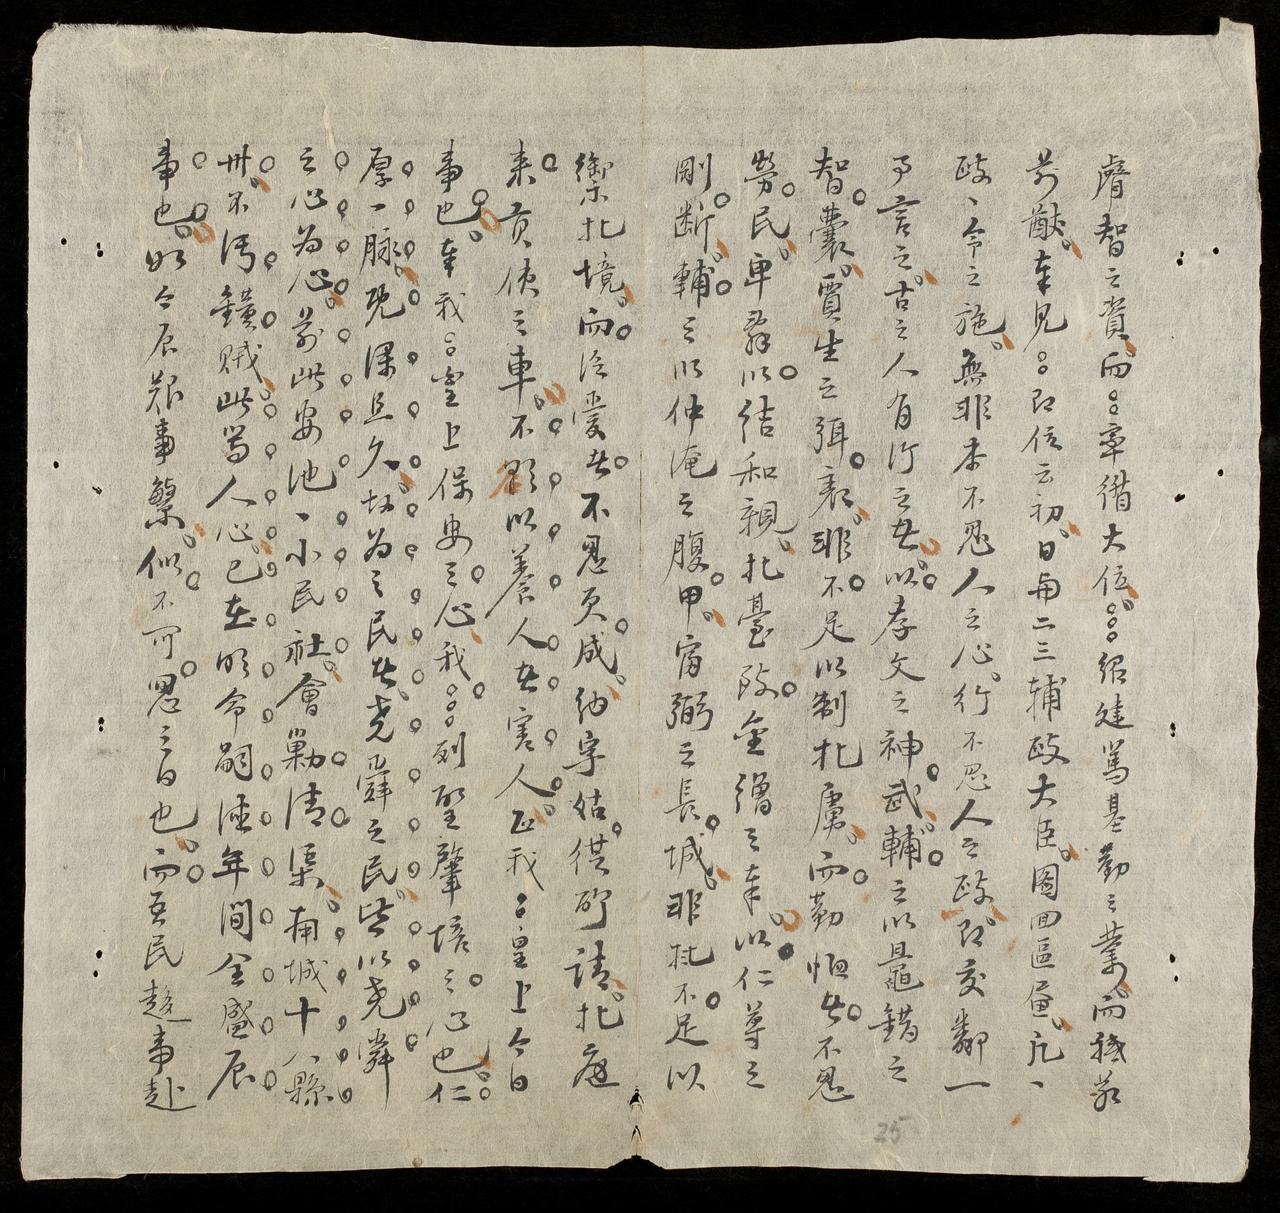 睿智之資而率循大位紹建篤基勤之業而穆前
前猷奉見即位之初日與二三輔政大臣圖回區處凡一
政一令之施無非本不忍人之心行不忍人之政即交鄰一
事言之古之人有行之者以孝文之神武輔之以鼂錯之
智囊賈生之弭表非不足以制北虜而勤恤者不忍
勞民卑辭以結和親北臺致金繒之奉以仁尊之
剛断輔之以仲淹之腹甲富弼之長城非北不足以
禦北境而洽愛者不忍頁成納字姑從所請北庭
来貢使之車不願以養人者害人正我皇上今日
事也奉我皇上保安之心我列聖肇培之心也仁
厚一脉既深且久故為之民者堯舜之民皆以堯舜
之心為心前此安池一小民社會勦清渠南城十八縣
卅不謂鐘賊此篤人心已在明命嗣德年間全盛辰
事也如今辰艱事繁似不可忍之日也而吾民趍事赴